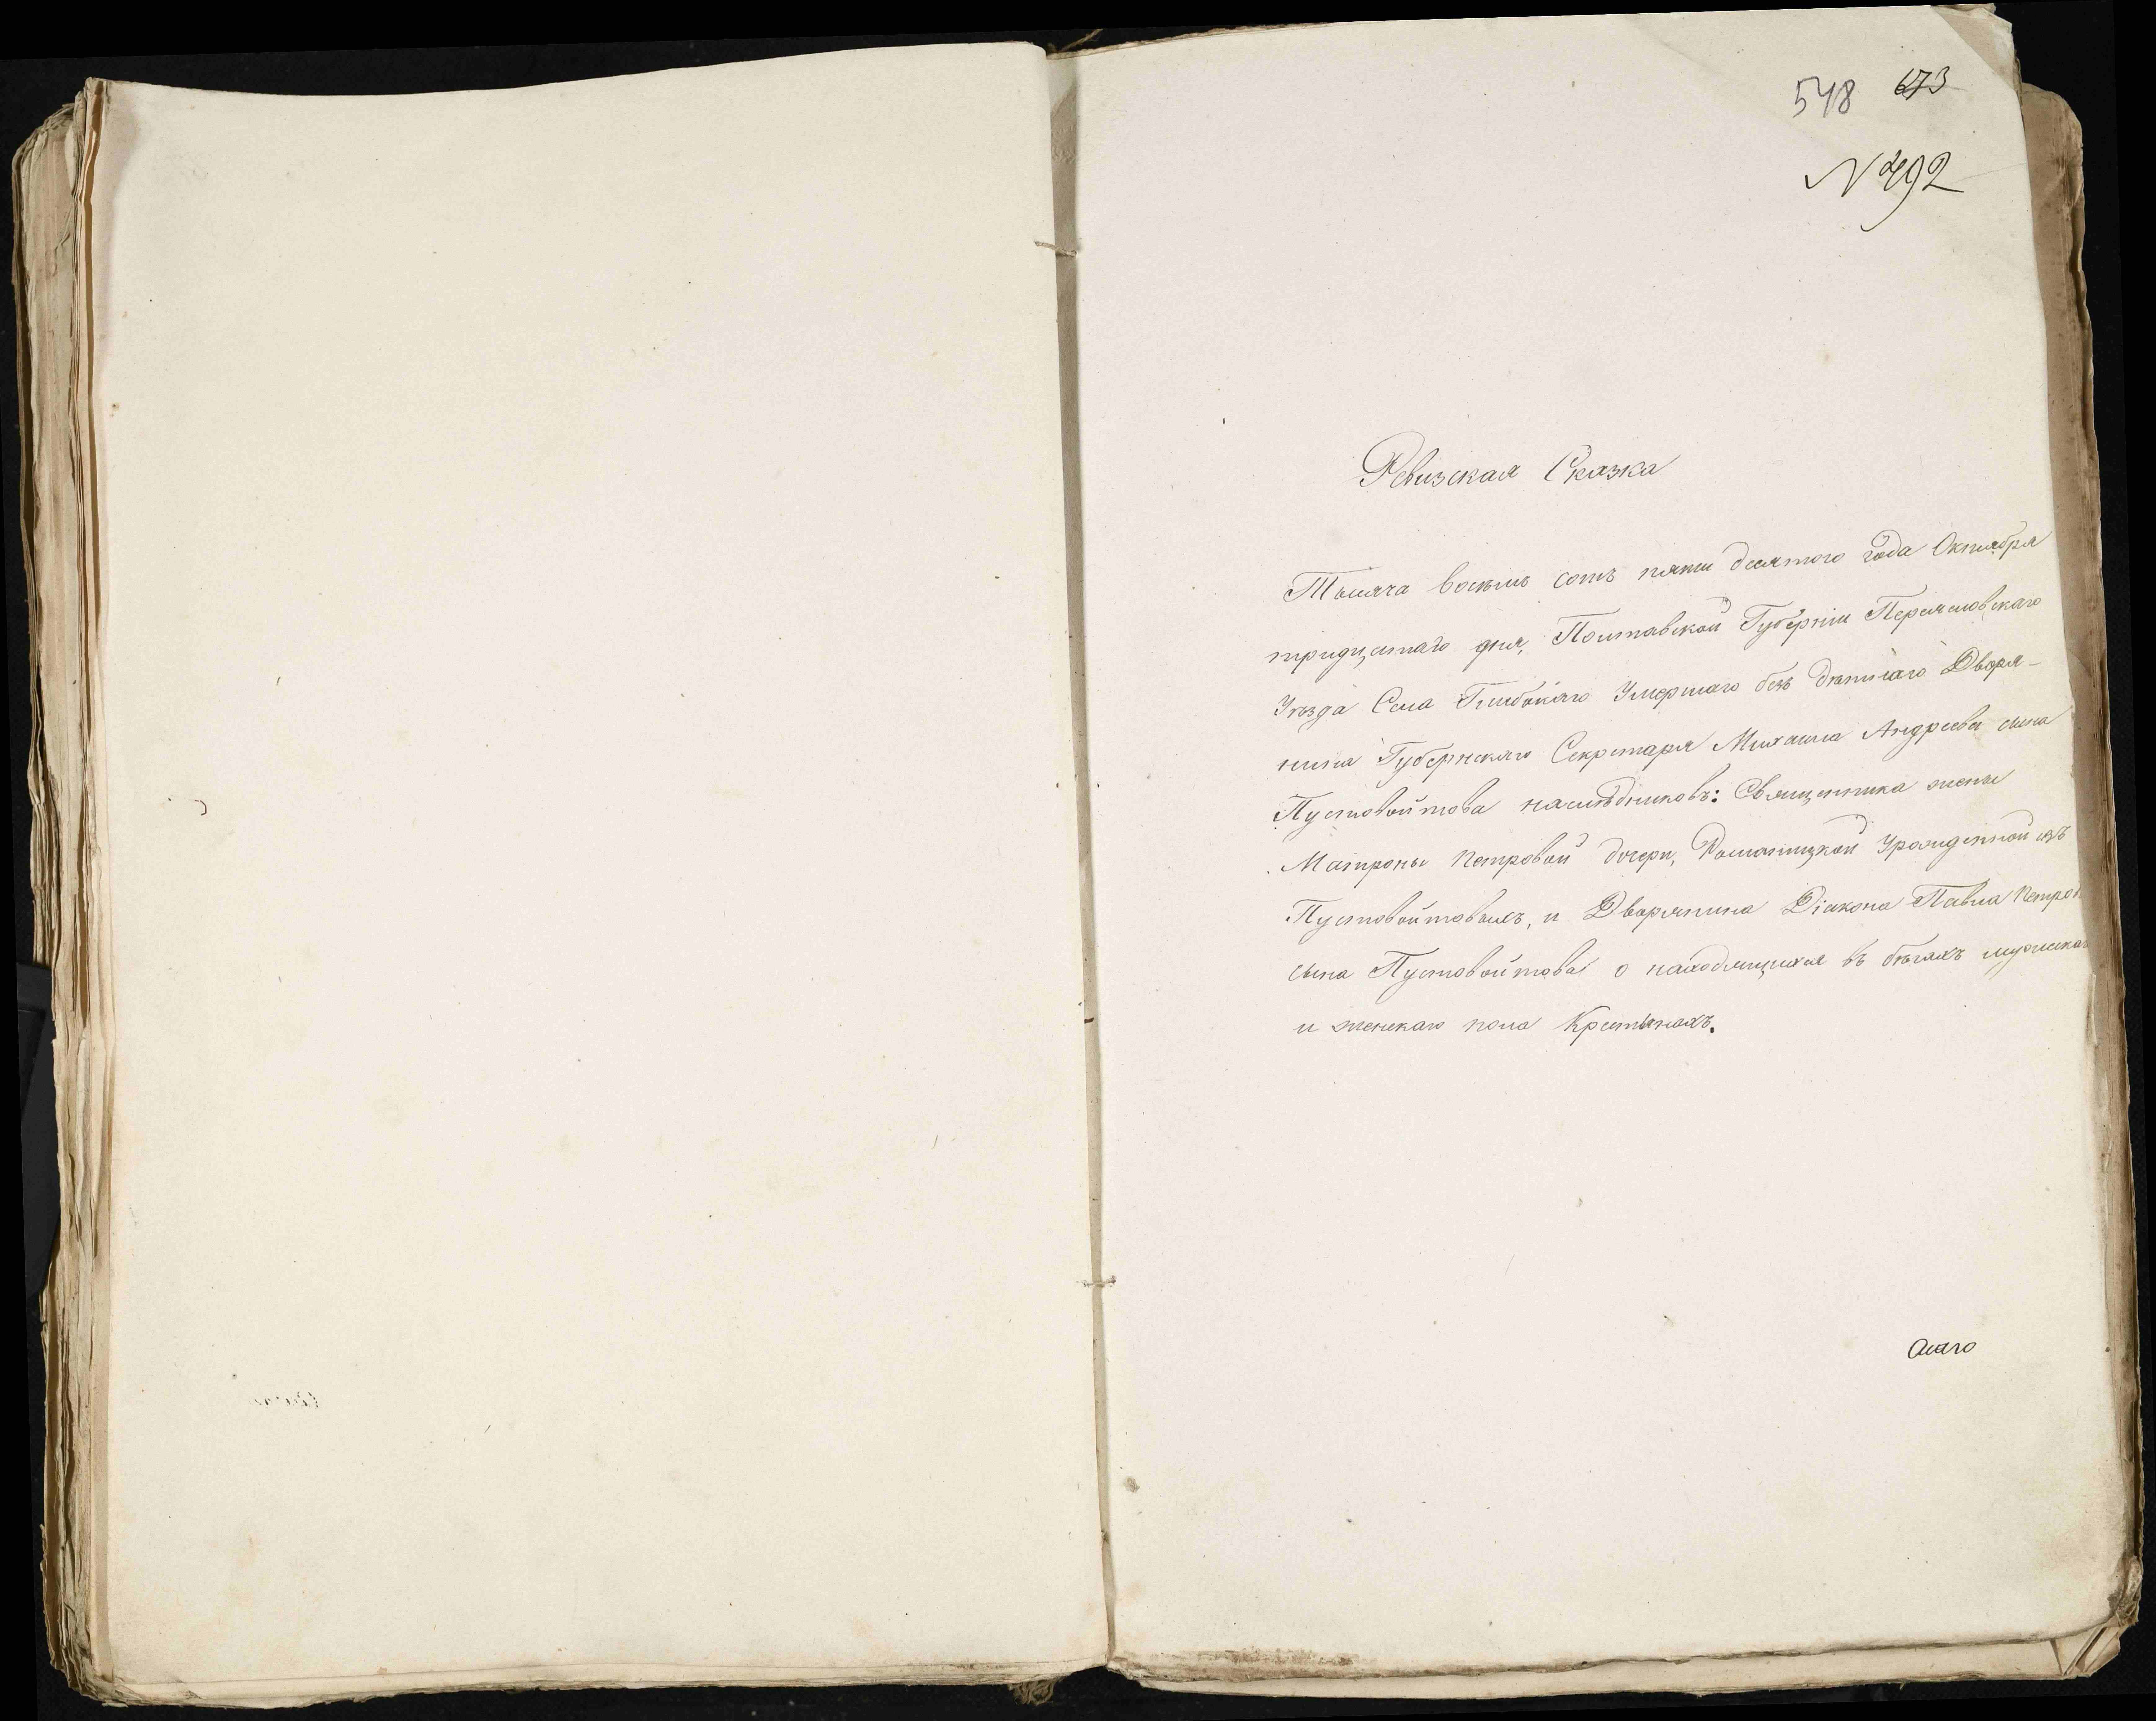 548 673
N 492
Ревизская Сказка
Тысяча восемь сотъ пяти десятого года Октября
тридцатаго дня, Полтавской Губерніи Переяславскаго
Уѣзда Села Глибокаго Умершаго безъ дѣтнаго Дворя-
нина Губернскаго Секретаря Михаила Андреева сына
Пустовойтова наслѣдниковъ: Священника жены
Матроны Петровой дочери, Романицкой Урожденной изъ
Пустовойтовыхъ, и Дворянина Діакона Павла Петров
сына Пустовойтова о находящихся въ бѣгахъ мужска
и женскаго пола Крестьянахъ.